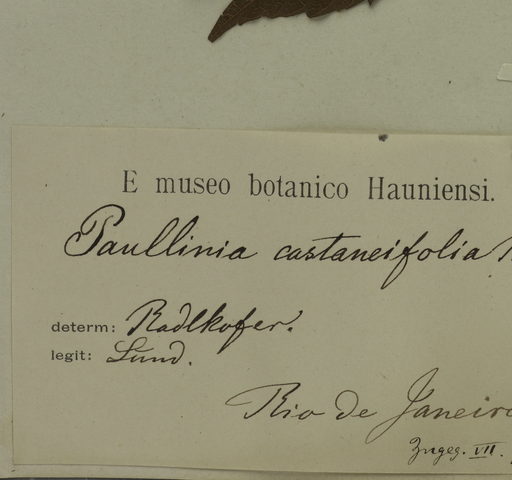 E museo botanico Hauniensi.
Paullinia castaneifolia
determ: Radlkofer.
legit: Lund.
Rio de Janeiro
Zugeg. VII.